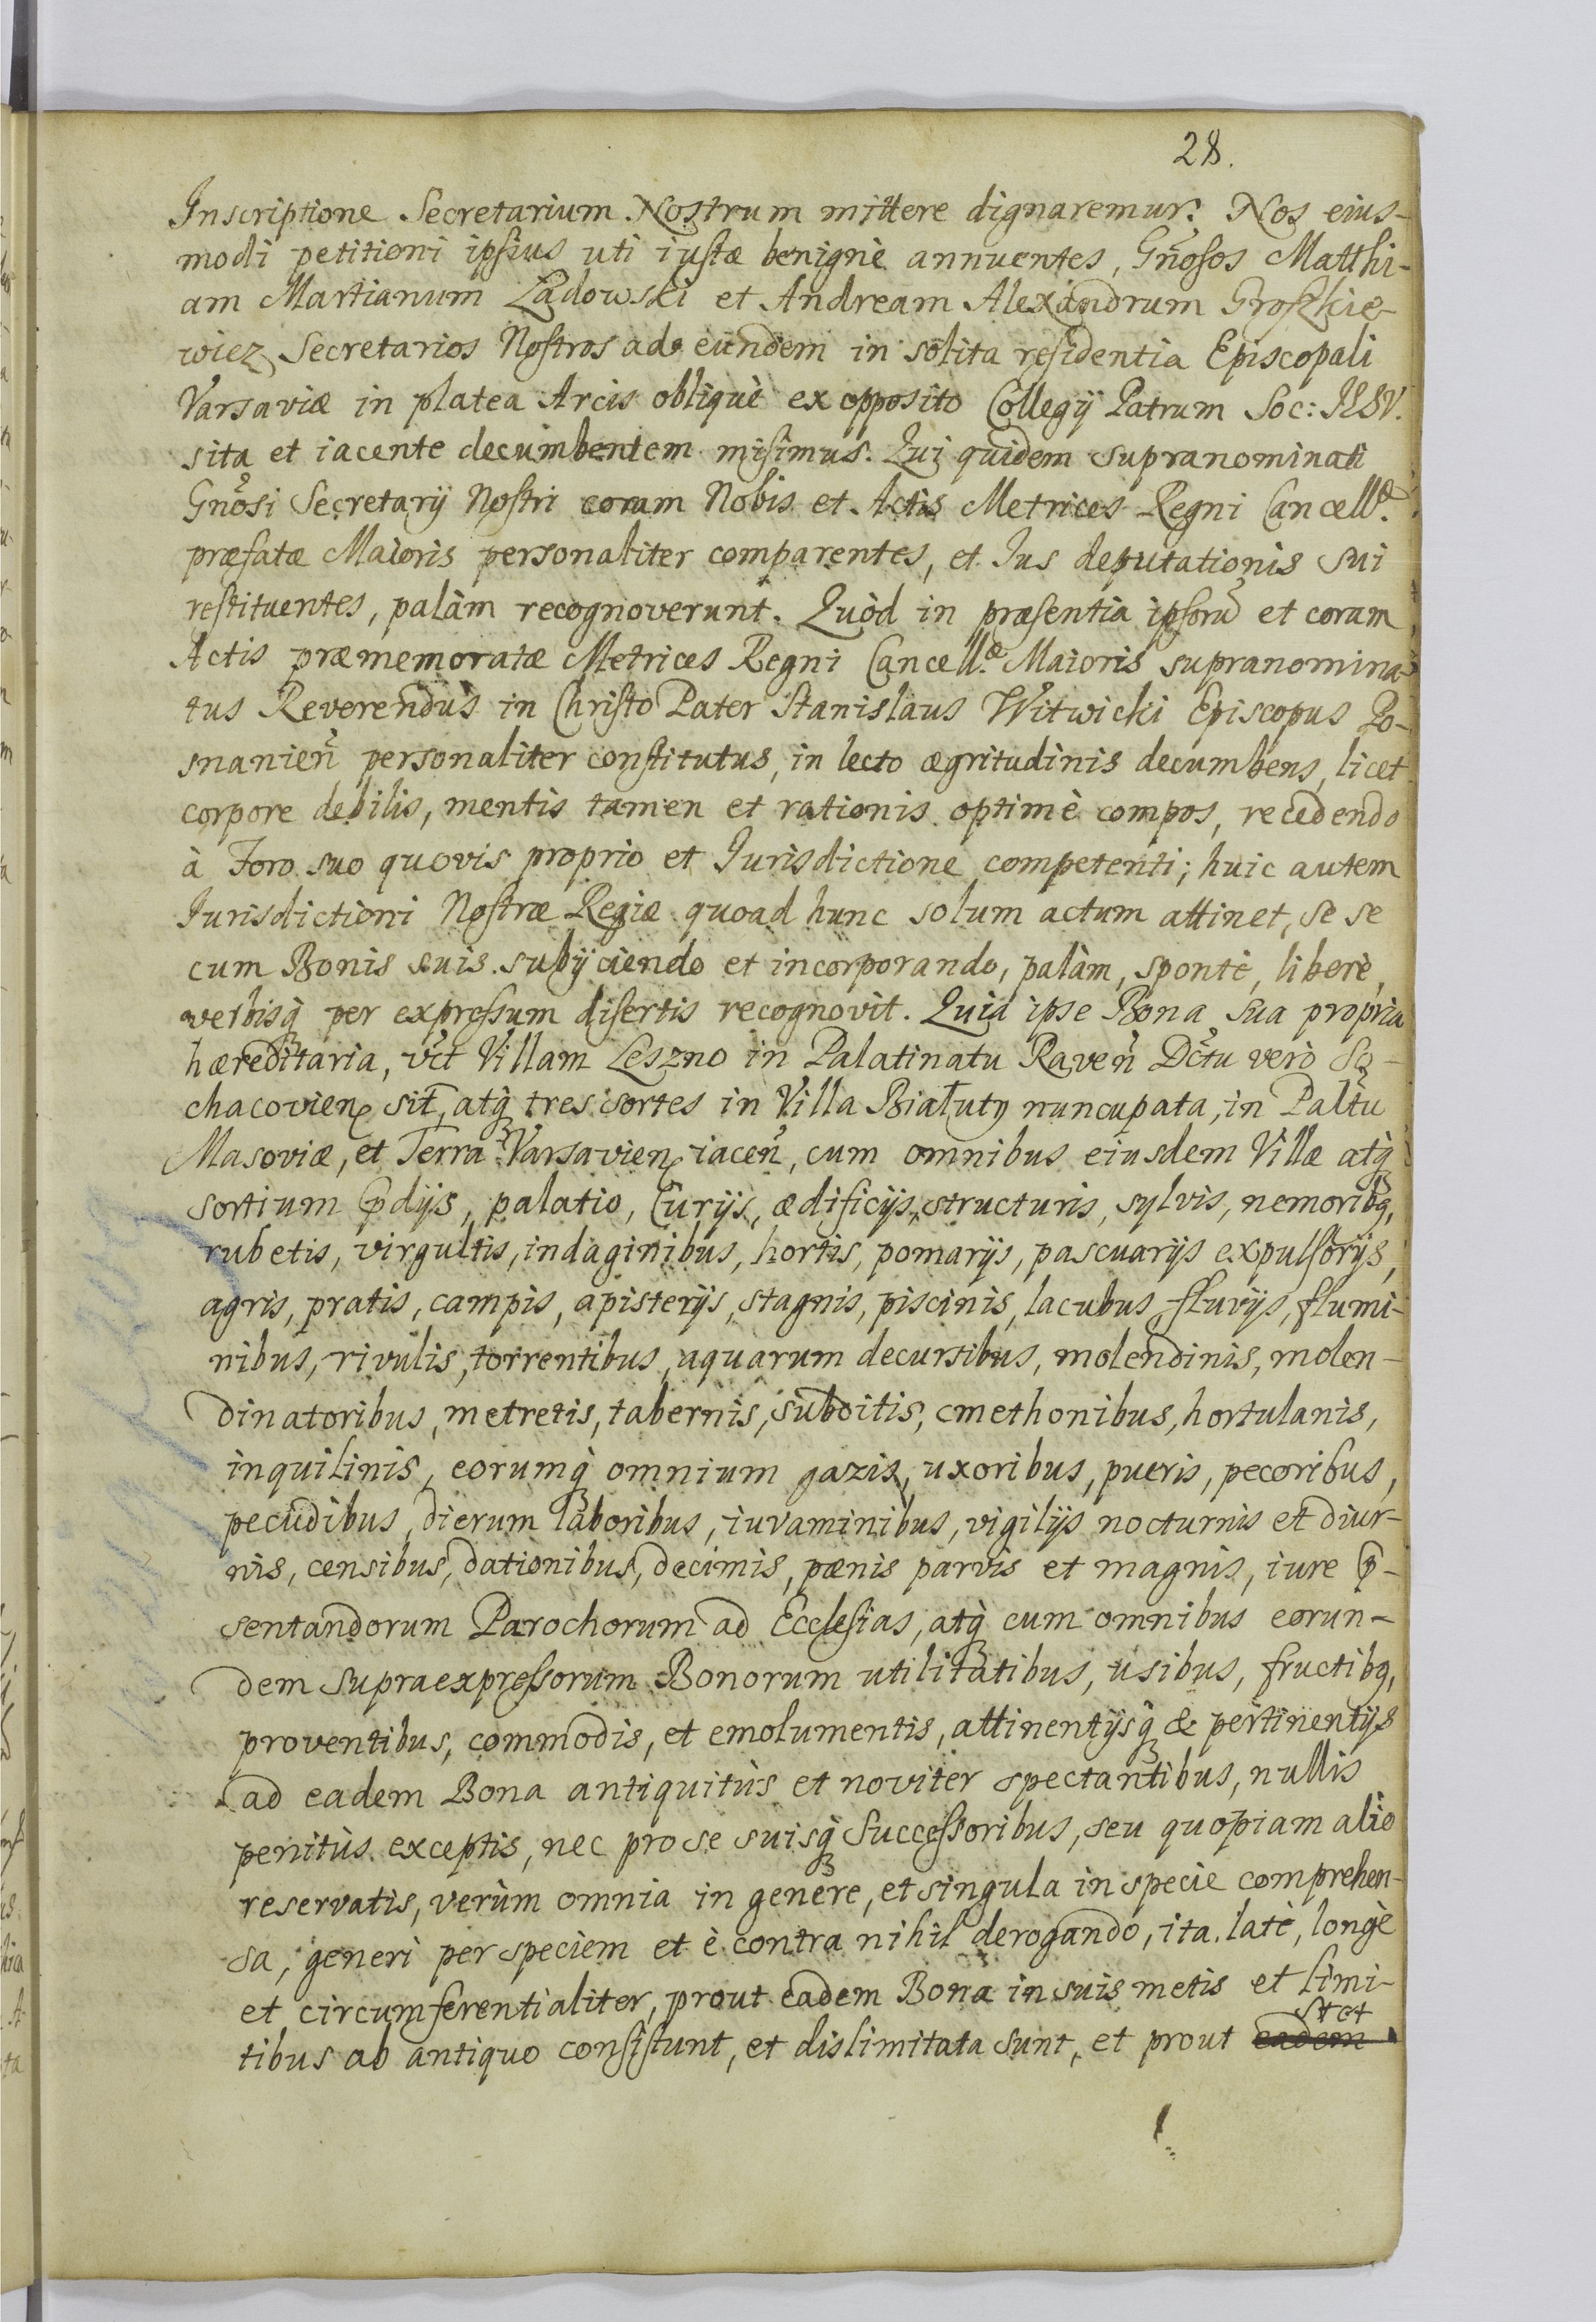 28.
Inscriptione Secretarium Nostrum mittere dignaremur: Nos eius-
modi petitioni ipsius uti iustæ benignè annuentes, Gñosos Matthi-
am Martianum Ządowski et Andream Alexandrum Groszkie-
wicz Secretarios Nostros ad eundem in solita residentia Episcopali
Varsaviæ in platea Arcis obliquè ex opposito Collegÿ Patrum Soc: IESV.
sita et iacente decumbentem misimus. Qui quidem supranominati
Gñosi Secretarÿ Nostri coram Nobis et Actis Metrices Regni Cancellæ.
præfatæ Maioris personaliter comparentes, et Ius deputationis sui
restituentes, palàm recognoverunt. Quòd in præsentia ipsorũ et coram
Actis præmemoratæ Metrices Regni Cancellæ. Maioris supranomina-
tus Reverendus in Christo Pater Stanislaus Witwicki Episcopus Po-
snanieñ personaliter constitutus, in lecto ægritudinis decumbens, licet
corpore debilis, mentis tamen et rationis optimè compos, recedendo
à Foro suo quovis proprio et Jurisdictione competenti; huic autem
Jurisdictioni Nostræ Regiæ quoad hunc solum actum attinet, se se
cum Bonis suis subÿciendo et incorporando, palàm, spontè, liberè,
verbisq̃ per expressum disertis recognovit. Quia ipse Bona sua propria
hæreditaria, vc̃t Villam Leszno in Palatinatu Raveñ Dc̃tu verò So-
chacovien̨ sit̃, atq̃ tres sortes in Villa Białuty nuncupata, in Pal̃tu
Masoviæ, et Terra Varsavien̨ iaceñ, cum omnibus eiusdem Villæ atq̃
sortium p̃dÿs, palatio, Curÿs, ædificÿs, structuris, sylvis, nemoribq,
rubetis, virgultis, indaginibus, hortis, pomarÿs, pascuarÿs expulsorÿs,
agris, pratis, campis, apisterÿs, stagnis, piscinis, lacubus, fluvÿs, flumi-
nibus, rivulis, torrentibus, aquarum decursibus, molendinis, molen-
dinatoribus, metretis, tabernis, subditis, cmethonibus, hortulanis,
inquilinis, eorumq̃ omnium gazis, uxoribus, pueris, pecoribus,
pecudibus, dierum laboribus, iuvaminibus, vigilÿs nocturnis et diur-
nis, censibus, dationibus, decimis, pænis parvis et magnis, iure p̃-
sentandorum Parochorum ad Ecclesias, atq̃ cum omnibus eorun-
dem supraexpressorum Bonorum utilitatibus, usibus, fructibq,
proventibus, commodis, et emolumentis, attinentÿsq̃ & pertinentÿs
ad eadem Bona antiquitùs et noviter spectantibus, nullis
penitùs exceptis, nec pro se suisq̃ Successoribus, seu quopiam alio
reservatis, verùm omnia in genere, et singula in specie comprehen-
sa, generi per speciem et è contra nihil derogando, ita latè, longè
et circumferentialiter, prout eadem Bona in suis metis et limi-
tibus ab antiquo consistunt, et dislimitata sunt, et prout eadem
stet